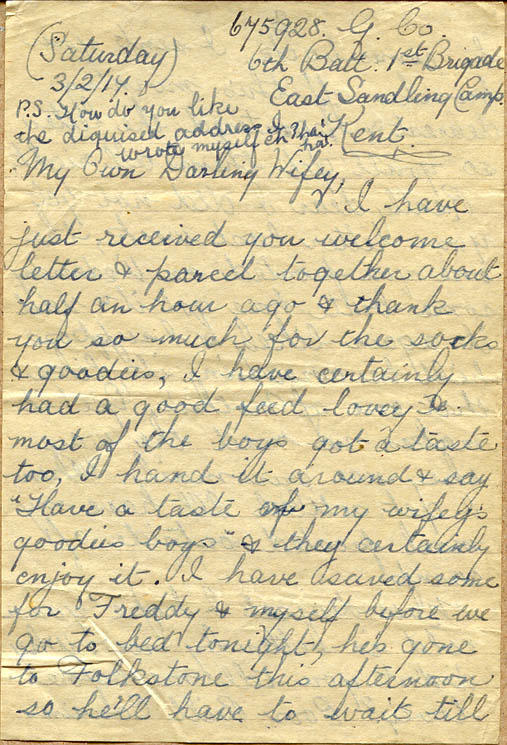 675928. G. Co.
6th Batt. 1st Brigade
East Sandling Camp.
Kent.
(Saturday)
3/2/17.
P.S. How do you like
the diquised address I
wrote myself eh? ha!
ha.
My Own Darling Wifey,
I have
just received you welcome
letter & parcel together about
half an hour ago & thank
you so much for the socks
& goodies, I have certainly
had a good feed lovey &
most of the boys got a taste
too, I hand it around & say
"Have a taste of my wifey's
goodies boys" & they certainly
enjoy it. I have saved some
for Freddy & myself before we
go to bed tonight, he's gone
to Folkstone this afternoon
so he'll have to wait till